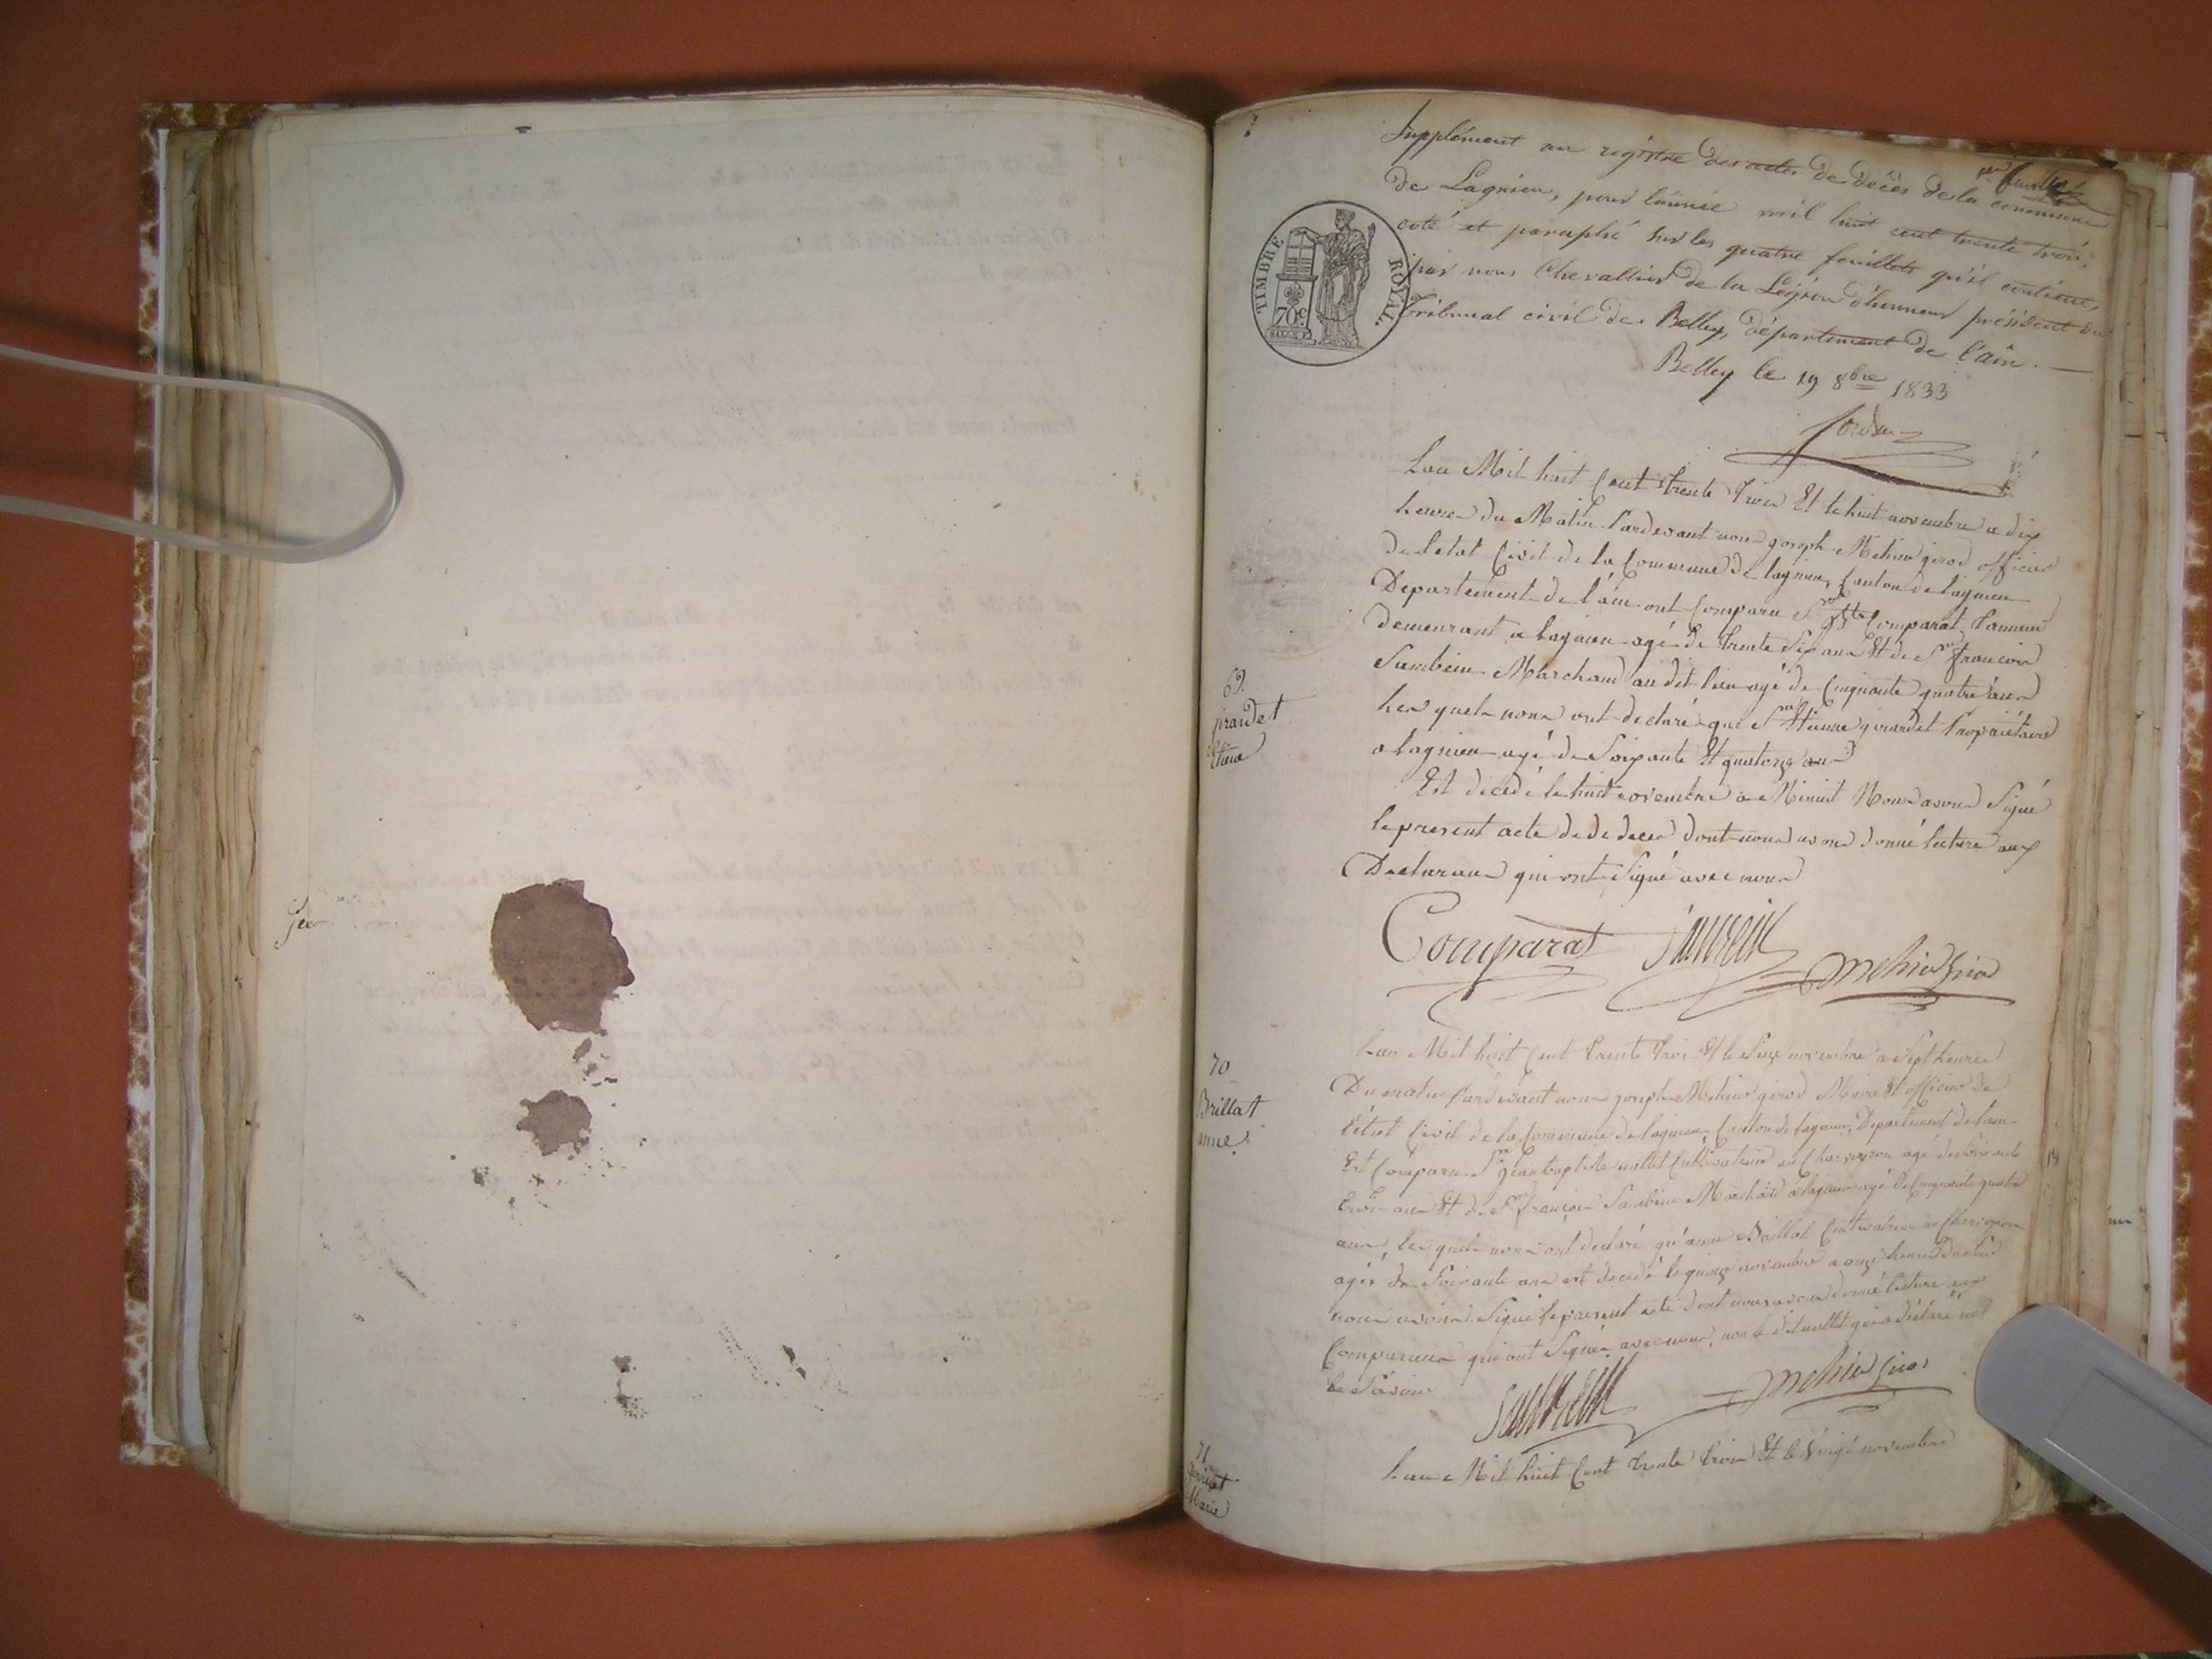 Supplément au registre des actes de décès de la commune
de Lagnieu, pour l'année mil huit cent trente trois,
coté et paraphé sur les quatre feuillets qu'il contient,
par nous Chevallier de la Légion d'honneur président du
Tribunal civil de Belley, département de l'ain.
Belley le 19 8bre 1833
TIMBRE ROYAL.
70c.
Lan Mil huit Cent trente trois Et le huit novembre a dix
heures du Matin Pardevant nous joseph Mehier girod officier
de letat Civil de la Commune de lagnieu, Canton de lagnieu
Departement de l'ain ont Comparu Sr Comparat tanneur
demeurant a lagnieu agé de trente Six ans Et de Sr françois
Marchand au dit lieu agé de Cinquante quatre ans
Les quels nous ont declaré que Sr Etienne girardet Propriétaire
a lagnieu agé de Soixante Et quatorze ans
Est decedé le huit novembre a Minuit Nous avons Signé
le present acte de de deces dont nous avons donné lecture aux
Declarans qui ont Signé avec nous
69.
Comparat
Mehier Girod
70
Brillat
anne
Lan Mil huit Cent trente trois Et le Seize novembre a Sept heures
Du matin Pardevant nous joseph Mehier girod Maire Et officier de
l'état Civil de la Commune de lagnieu, Canton de lagnieu, Departement de lain
Est Comparu Sr jean baptiste Cultivateur a agé de
trois ans Et de Sr françois Marchand a lagnieu agé de Cinquante quatre
ans, les quels nous ont declaré qu'anne Brillat Cultivatrice a
agée de Soixante ans est decedé le quinze novembre a onze heures du Soir
nous avons Signé le present acte dont nous avons donné lecture aux
Comparans qui ont Signé avec nous, non le dit qui a déclaré ne
le Savoir
Mehier Girod
71
Marie
Lan Mil huit Cent trente trois Et le novembre